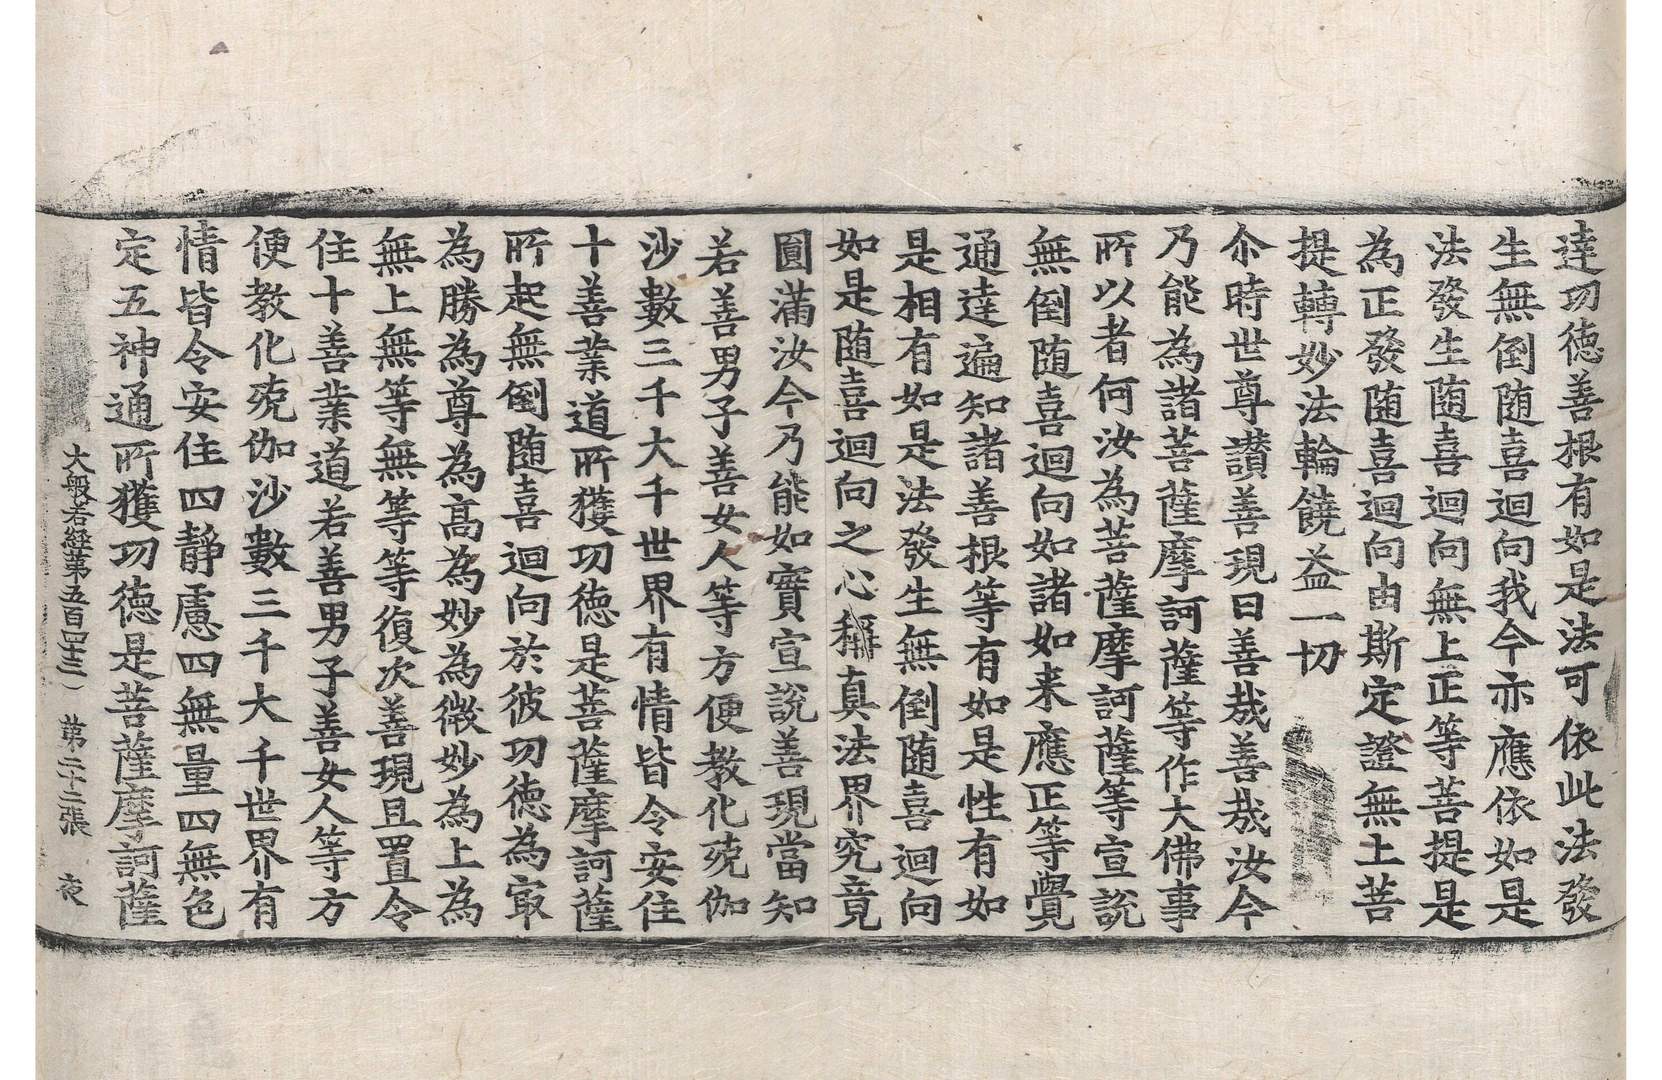 達功德善根有如是法可依此法發
生無倒随喜迴向我今亦應依如是
法發生随喜迴向無上正等菩提是
為正發随喜迴向由斯定證無上菩
提轉妙法輪饒益一切
尒時世尊讃善現曰善㢤善㢤汝今
乃能為諸菩薩摩訶薩等作大佛事
所以者何汝為菩薩摩訶薩等宣說
無倒随喜迴向如諸如来應正等覺
通達遍知諸善根等有如是性有如
是相有如是法發生無倒随喜迴向
如是随喜迴向之心稱真法界究竟
圓滿汝今乃能如實宣說善現當知
若善男子善女人等方便教化殑伽
沙數三千大千世界有情皆令安住
十善業道所獲功徳是菩薩摩訶薩
所起無倒随喜迴向於彼功徳為㝡
為勝為尊為髙為妙為微妙為上為
無上無等無等等復次善現且置令
住十善業道若善男子善女人等方
便教化殑伽沙數三千大千世界有
情皆令安住四靜慮四無量四無色
定五神通所獲功徳是菩薩摩訶薩
大般若経第五百四十三 第二十二張 夜